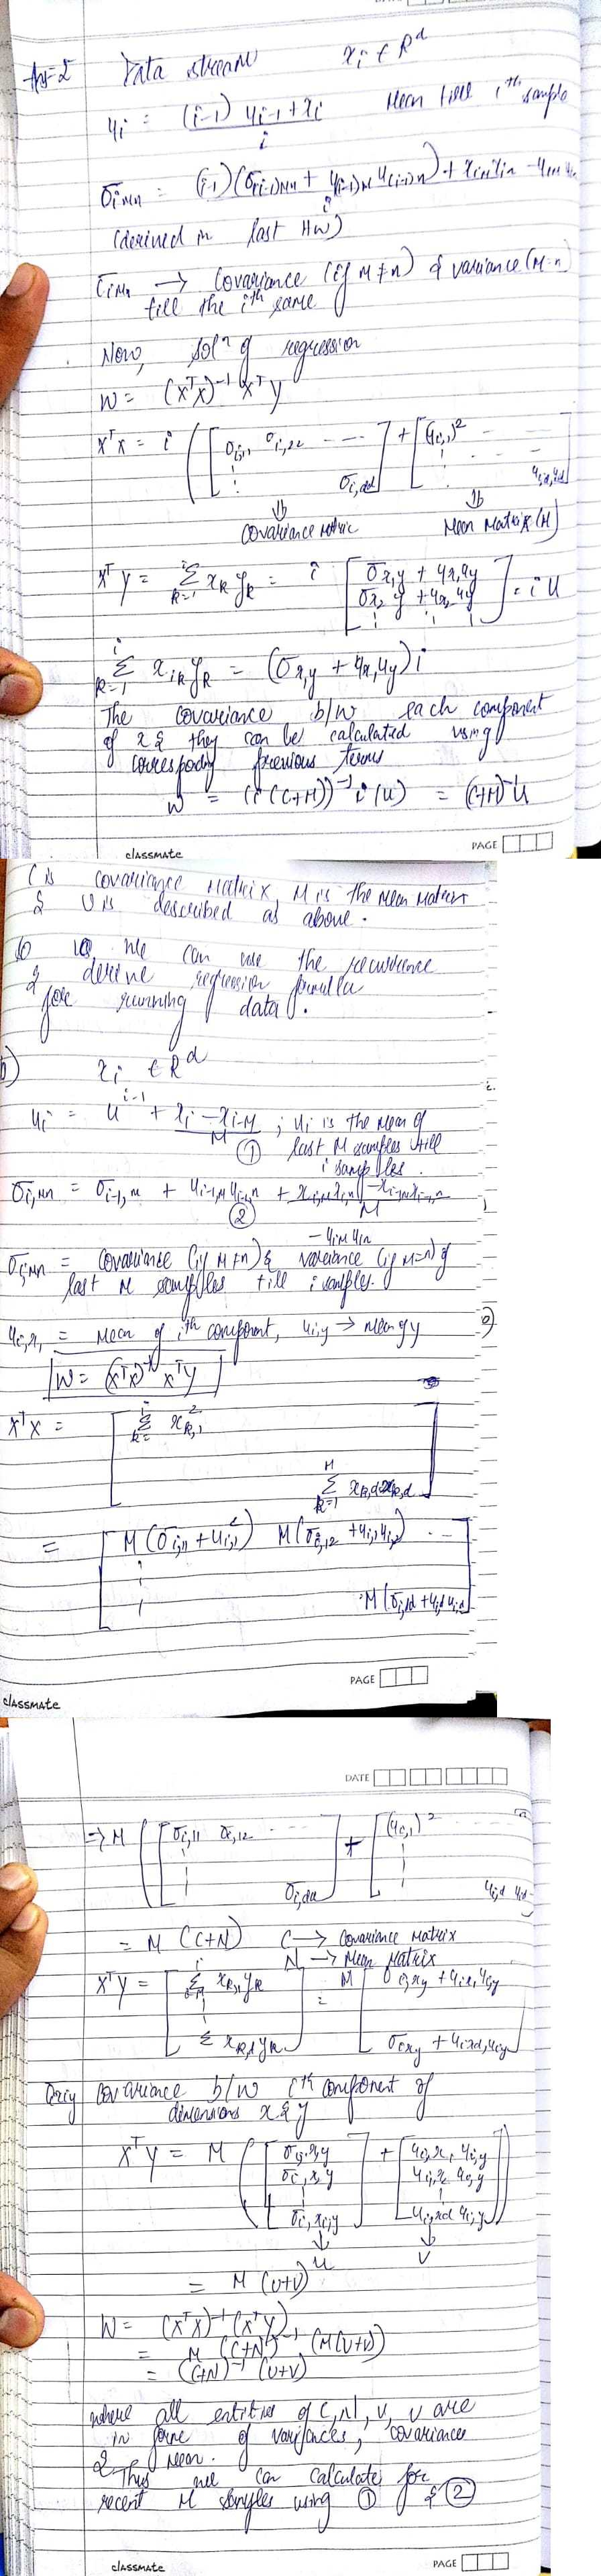 Ans-2 Data stream xi ∈ R^d
μi = ((i-1) μi-1 + xi) / i Mean till i^th sample
σi,mn = ((i-1)(σ(i-1)mn + μ(i-1)m μ(i-1)n) + xim xin) / i - μim μin
(derived in last HW)
σimn → Covariance (if m≠n) & variance (m=n)
till the i^th same
Now, sol^n of regression
W = (X^T X)^-1 X^T Y
X^T X = i ( [ σi,11 σi,12 --- σi,dd ] + [ (μi,1)^2 - - μi,d μi,d ]
⇓ ⇓
Covariance matrix Mean Matrix (M)
X^T Y = Σ k=1 i xk yk = i [ σx,y + μx, μy σx2 y + μx2 μy ] = i U
Σ k=1 i xik yk = (σx,y + μx, μy) i
The covariance b/w each component
of x & they can be calculated using
corresponding previous terms
W = (i (C+M))^-1 i (U) = (C+M)^-1 U
PAGE
classmate
C is covariance matrix, M is the mean matrix
& U is described as above.
So we can use the recurrence
& derive regression formula
for running data.
b) xi ∈ R^d
μi = μ^i-1 + (xi - xi-M) / M ; μi is the mean of
① last M samples till
i samples.
σi,mn = σi-1,mn + μi-1,m μi-1,n + (xi,m xi,n - xi-M,m xi-M,n) / M
② - μim μin
σi,mn = covariance (if m≠n) & variance (if m=n) of
last M samples till i samples.
μi,x1 = Mean of i^th component, μi,y → mean of y
W = (X^T X)^-1 X^T Y
X^T X = [ Σ k= i xk,1^2 Σ k=1 M xk,d xk,d ]
= [ M(σi,11 + μi,1^2) M(σi,12 + μi,1 μi,2) -- M(σi,dd + μi,d μi,d) ]
PAGE
classmate
DATE
⇒ M ( [ σi,11 σi,12 σi,dd ] + [ (μi,1)^2 μi,d μi,d ]
= M (C+N) C → Covariance matrix
N → Mean Matrix
X^T Y = [ Σ xk,1 yk Σ xk,d yk ] = M [ σi,xy + μi,x, μi,y σi,xy + μi,xd, μi,y ]
σi,xy covariance b/w i^th component of
dimensions x & y
X^T Y = M ( [ σi,x,y σi,x,y σi,xi,y ] + [ μi,x, μi,y μi,x μi,y μi,xd μi,y ] )
↓ ↓
U V
= M (U+V)
W = (X^T X)^-1 (X^T Y)
= M (C+N)^-1 (M(U+V))
= (C+N)^-1 (U+V)
where all entities of C, N, U, V are
in form of variances, covariance
& mean.
Thus we can calculate for
recent M samples using ① & ②
classmate PAGE